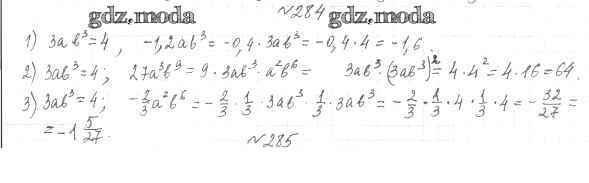 №284
gdz.moda gdz.moda
1) 3ab³=4, -1,2ab³ = -0,4·3ab³ = -0,4·4 = -1,6.
2) 3ab³=4; 27a³b⁹ = 9·3ab³·a²b⁶ = 3ab³·(3ab³)² = 4·4² = 4·16 = 64.
3) 3ab³=4; -2/3a²b⁶ = -2/3·1/3·3ab³·1/3·3ab³ = -2/3·1/3·4·1/3·4 = -32/27 =
= -1 5/27.
№285